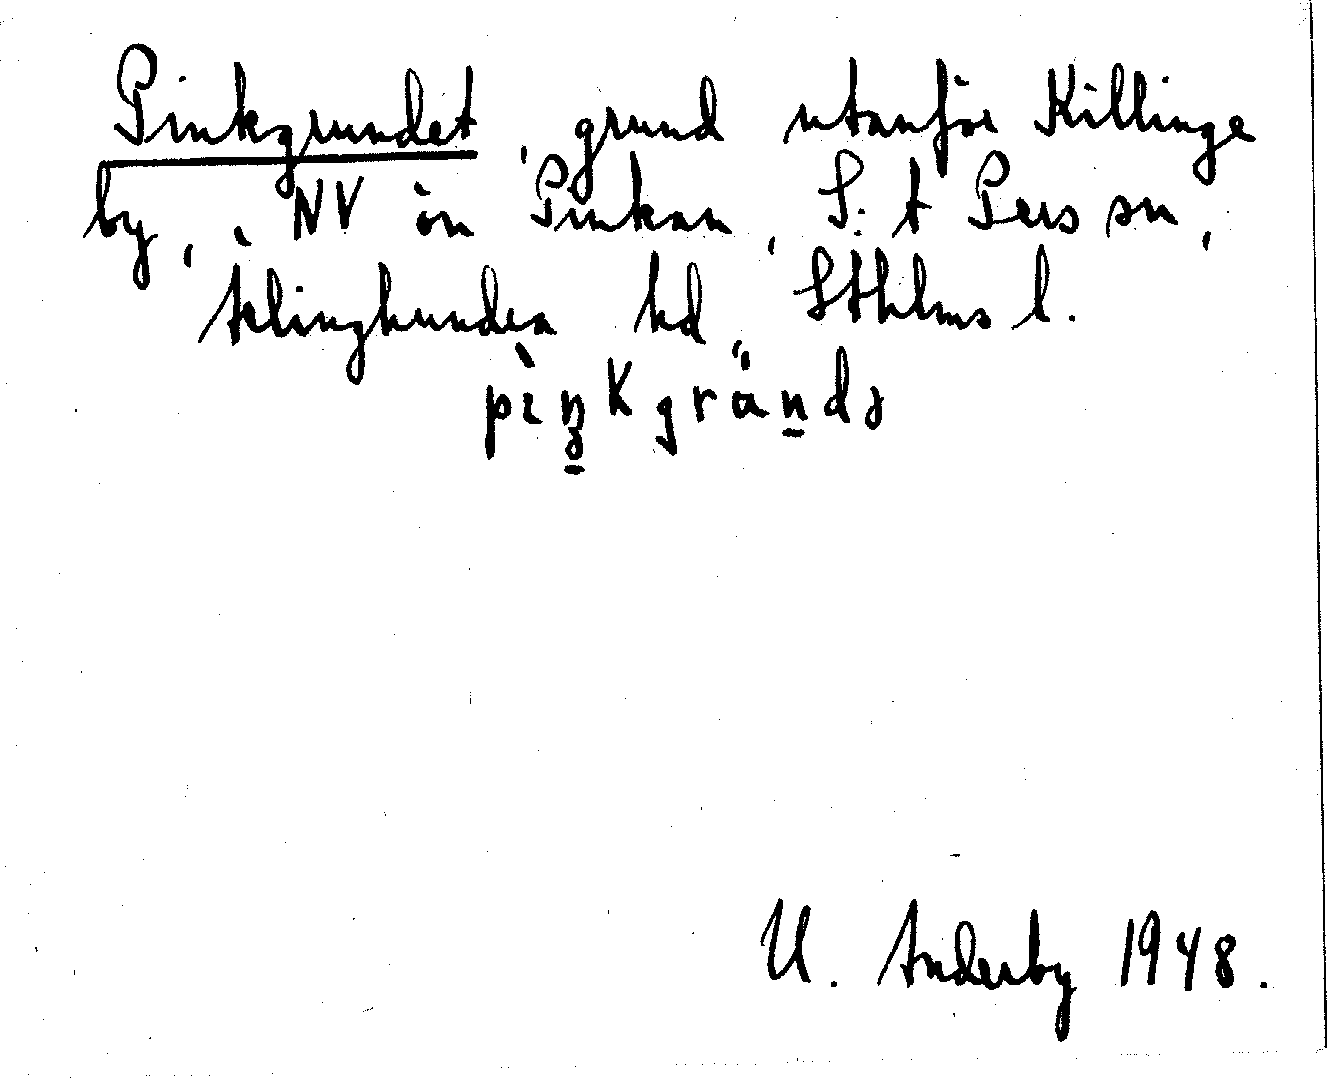 Pinkgrundet, grund utanför Killinge
by, NV ön Pinkan, S:t Pers sn,
Aklinghundra hd, Sthlms l.
U. Anderby 1948.